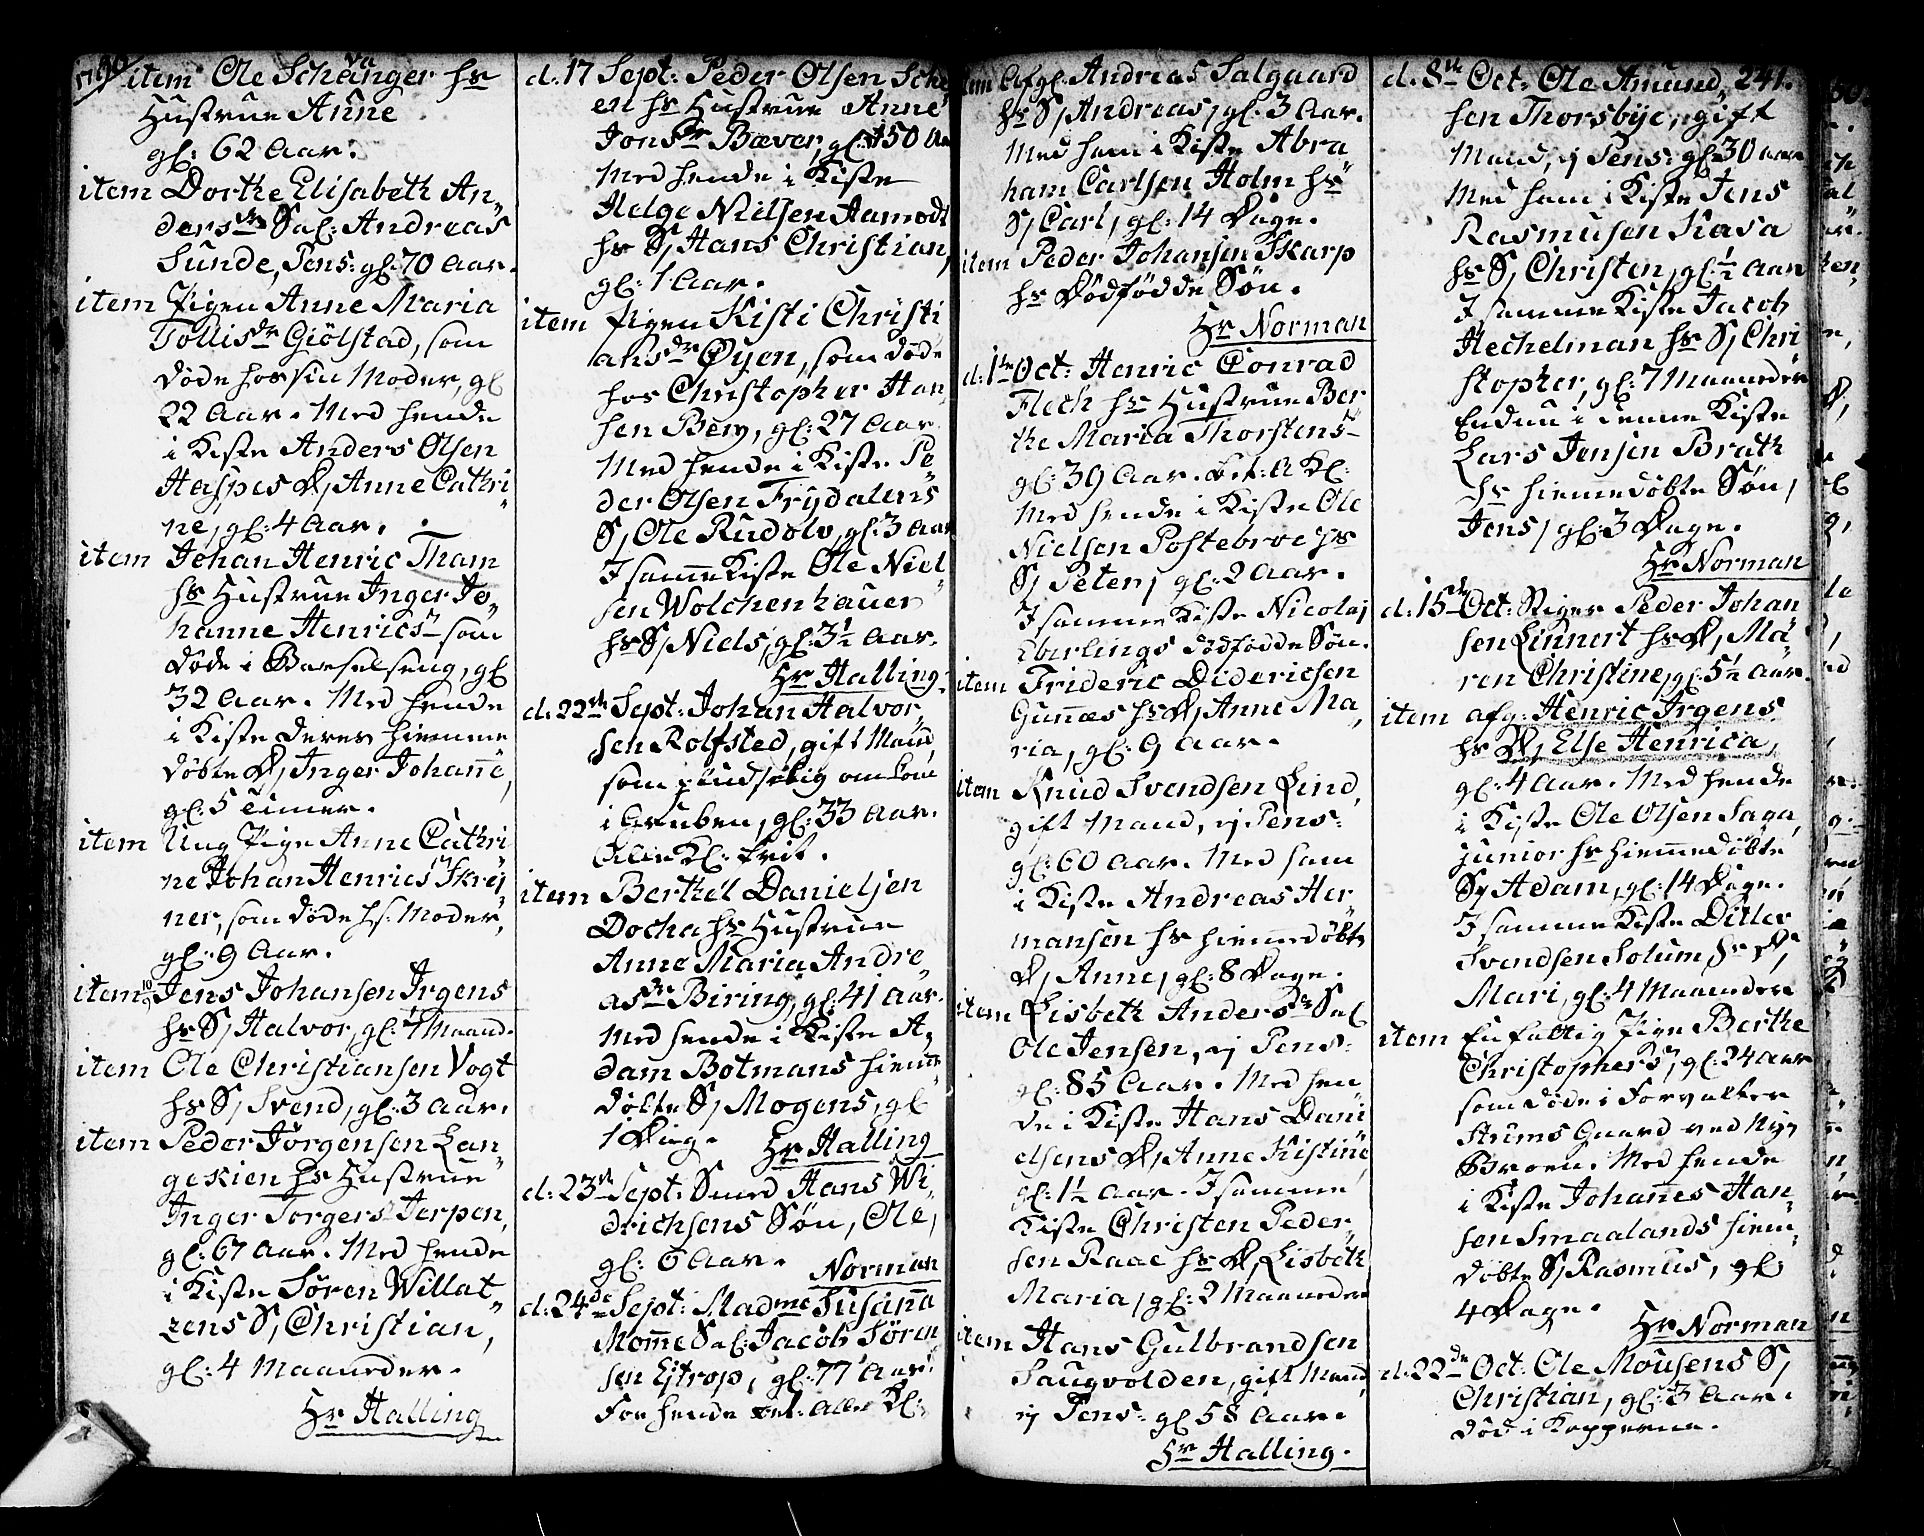 1790
item Ole Schava̅nger hs
Hustrue Anne
gl: 62 Aar.
item Dorthe Elisabeth An„
dersdr Sal: Andreas
Sunde, Pens: gl: 70 Aar.
item Pigen Anne Maria
Tollisdr Giölstad, som
døde hos sin Moder, gl
22 Aar. Med hende
i Kiste Anders Olsen
Haspes D, Anne Cathri„
ne, gl: 4 Aar.
item Johan Henric Tham
hs Hustrue Inger Jo„
hanne Henricsdr som
døde i Barselseng, gl
32 Aar. Med hende
i Kiste deres hiemme
døbte D, Inger Johanne,
gl: 5 Timer.
item Ung Pige Anne Cathri
ne Johan Henrics Skrej„
ner, som døde hs: Moder,
gl: 9 Aar.
item 10/9 Jens Johansen Irgens
hs S, Halvor, gl: 4 Maand.
item Ole Christiansen Vogt
hs S, Svend, gl: 3 Aar.
item Peder Jörgensen Lan„
gekien hs Hustrue
Inger Torgersdr Jerpen,
gl: 67 Aar. Med hende
i Kiste Sören Willat„
zens S, Christian,
gl: 4 Maaneder.
Hr Halling
d: 17 Sept: Peder Olsen Sche
en hs Hustrue Anne
Jonsdr Bæver, gl: 50 Aar
Med hende i Kiste
Helge Nielsen Aamodt
hs S, Hans Christian,
gl: 1 Aar.
item Pigen Kisti Christi
ansdr Øyen, som døde
hos Christopher Han
sen Bery, gl: 27 Aar
Med hende i Kiste Pe„
der Olsen Frydalens
S, Ole Rudolv, gl: 3 Aar
I samme Kiste Ole Niel„
sen Wolchenhauer
hs S, Niels, gl: 3½ Aar.
Hr Halling
d: 22de Sept: Johan Halvor„
sen Rolfsted, gift Mand
som pludselig omkom
i Gruben, gl: 33 Aar.
Alle Kl: frit.
item Berthel Danielsen
Docha hs Hustrue
Anne Maria Andre„
asdr Biring, gl: 41 Aar.
Med hende i Kiste A„
dam Botmans hiemme
døbte S, Mogens, gl
1 Dag. Hr Halling
d: 23de Sept: Smed Hans Wi„
drichsens Søn, Ole,
gl: 6 Aar. Norman
d: 24de Sept: Madme Susanna
Momme Sal: Jacob Sören
sen Ejtrop, gl: 77 Aar.
For hende bet: Alle Kl:
item Afgl: Andreas Salgaard
hs S, Andreas, gl: 3 Aar.
Med ham i Kiste Abra
ham Carlsen Holm hs
S, Carl, gl: 14 Dage.
item Peder Johansen Skarp
hs Dødfødde Søn.
Hr Norman
d: 1te Oct: Henric Conrad
Flech hs Hustrue Ber
the Maria Thorstens
gl: 39 Aar. bet: A Kl:
Med hende i Kiste Ole
Nielsen Postebroe hs
S, Peter, gl: 2 Aar.
I samme Kiste Nicolaj
Eberlings dødfødde Søn.
item Frideric Didericsen
Gunnes hs D, Anne Ma„
ria, gl: 9 Aar.
item Knud Svendsen Lind,
gift Mand, ej Pens:
gl: 60 Aar. Med ham
i Kiste Andreas Her„
mansen hs hiemmedøbte
D, Anne, gl: 8 Dage.
item Lisbeth Andersdr Sal
Ole Jensen, ej Pens:
gl: 85 Aar. Med hen
de i Kiste Hans Dani
elsens D, Anne Kistine
gl: 1½ Aar. I samme
Kiste Christen Peder„
sen Raae hs D, Lisbeth
Maria, gl: 2 Maaneder
item Hans Gulbrandsen
Saugvolden, gift Mand
ej Pens: gl: 58 Aar.
Hr Halling.
241.
d: 8de Oct: Ole Amund„
sen Thorsbye, gift
Mand, ej Pens: gl: 30 Aar
Med ham i Kiste Jens
Rasmusen Kasa
hs S, Christen, gl: ½ Aar
I samme Kiste Jacob
Hechelman hs S, Chri
stopher, gl: 7 Maaneder
Endnu i denne Kiste
Lars Jensen Brath
hs hiemmedøbte Søn,
Jens, gl: 3 Dage.
Hr Norman
d: 15de Oct: Stiger Peder Johan
sen Linnert hs D, Ma„
ren Christine, gl: 5½ Aar.
item afg: Henric Irgens
hs D, Else Henrica,
gl: 4 Aar. Med hende
i Kiste Ole Olsen Saga,
junior hs hiemmedøbte
S, Adam, gl: 14 Dage.
I samme Kiste Ditlev
Svendsen Solum hs D,
Mari, gl: 4 Maaneder
item En fattig Pige Berthe
Christophersdr, gl: 24 Aar
som døde i Forvalter
Stums Gaard ved Nye
Broen. Med hende
i Kiste Johannes Han„
sen Smaalands hiem„
døbte S, Rasmus, gl
4 Dage.
Hr Norman
d: 22de Oct: Ole Mousens S,
Christian, gl: 3 Aar.
død i Kopperne.